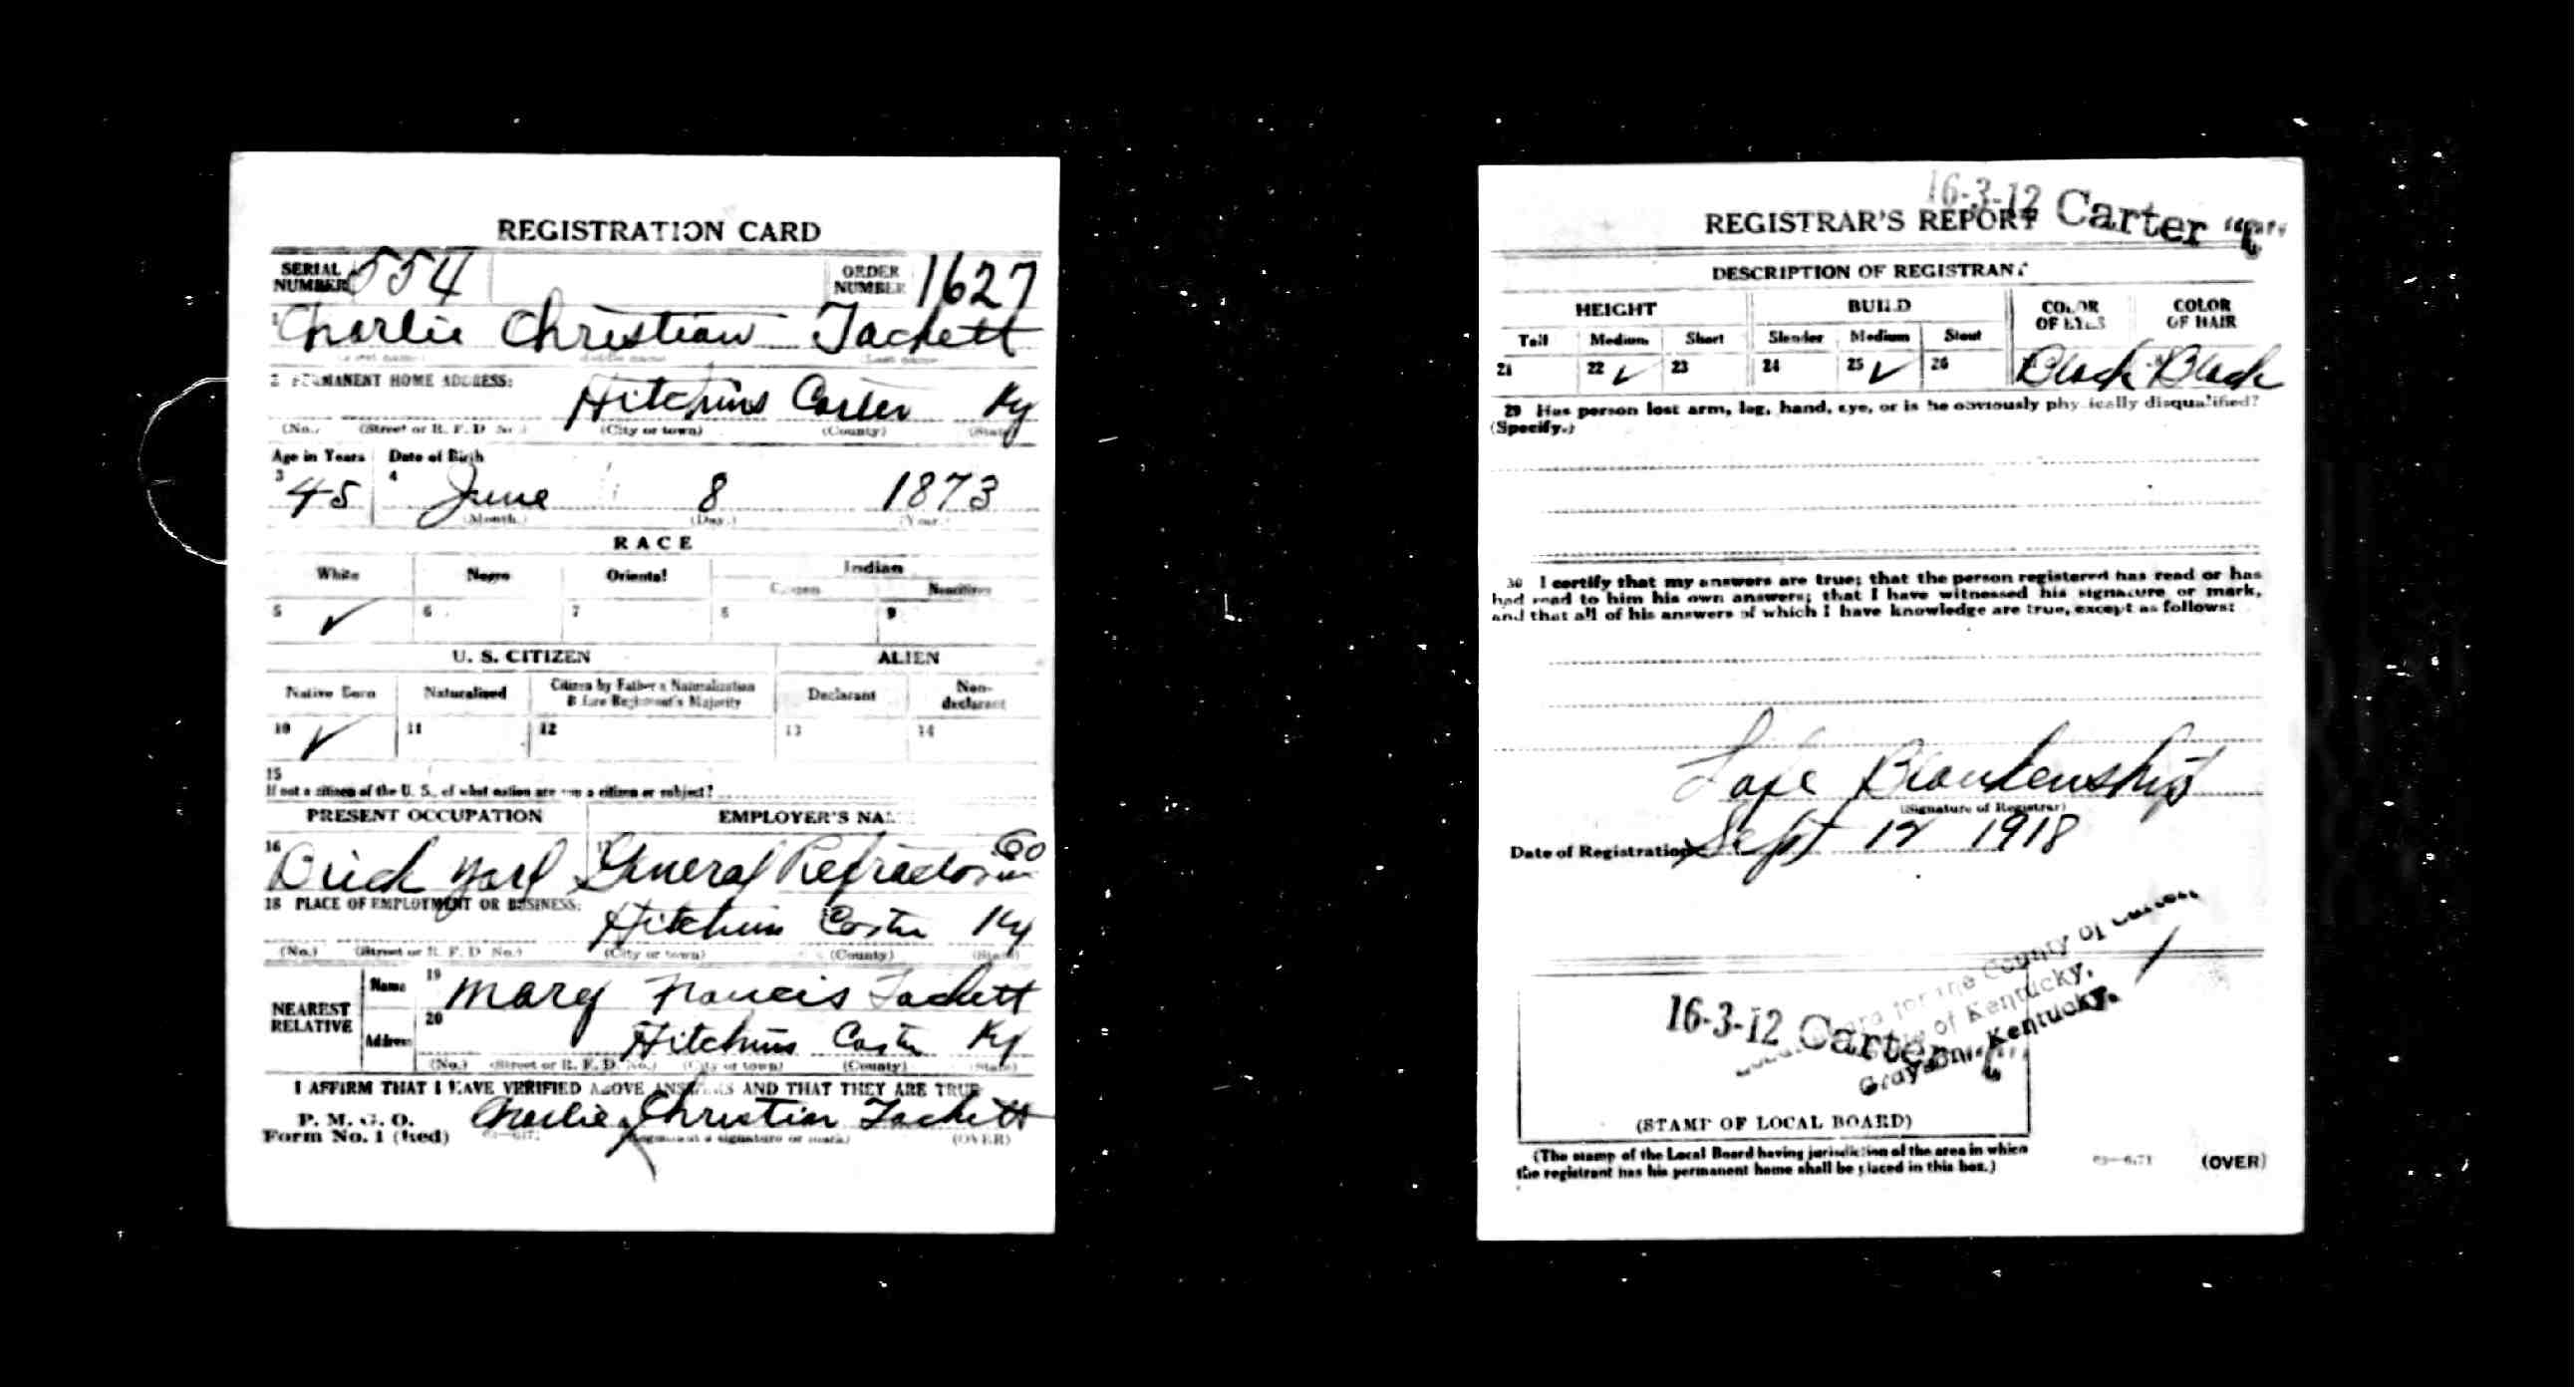 REGISTRATION CARD
SERIAL NUMBER 554 ORDER NUMBER 1627
1 Charlie Christian Tackett
(First name) (Middle name) (Last name)
2 PERMANENT HOME ADDRESS:
Hitchins Carter Ky
(No.) (Street or R. F. D. No.) (City or town) (County) (State)
Age in Years Date of Birth
3 45 4 June 8 1873
(Month.) (Day.) (Year.)
RACE
White Negro Oriental Indian
Citizen Noncitizen
5 ✓ 6 7 8 9
U. S. CITIZEN ALIEN
Native Born Naturalized Citizen by Father's Naturalization Before Registrant's Majority Declarant Non-declarant
10 ✓ 11 12 13 14
15
If not a citizen of the U. S., of what nation are you a citizen or subject?
PRESENT OCCUPATION EMPLOYER'S NAME
16 Brick Yard 17 General Refractories Co
18 PLACE OF EMPLOYMENT OR BUSINESS:
Hitchins Carter Ky
(No.) (Street or R. F. D. No.) (City or town) (County) (State)
NEAREST RELATIVE Name 19 Mary Francis Tackett
Address 20 Hitchins Carter Ky
(No.) (Street or R. F. D. No.) (City or town) (County) (State)
I AFFIRM THAT I HAVE VERIFIED ABOVE ANSWERS AND THAT THEY ARE TRUE
P. M. G. O.
Form No. 1 (Red) Charlie Christian Tackett
(Registrant's signature or mark) (OVER)
16-3-12 Carter "C"
REGISTRAR'S REPORT
DESCRIPTION OF REGISTRANT
HEIGHT BUILD COLOR OF EYES COLOR OF HAIR
Tall Medium Short Slender Medium Stout
21 22 ✓ 23 24 25 ✓ 26 Black Black
29 Has person lost arm, leg, hand, eye, or is he obviously physically disqualified?
(Specify.)
30 I certify that my answers are true; that the person registered has read or has
had read to him his own answers; that I have witnessed his signature or mark,
and that all of his answers of which I have knowledge are true, except as follows:
Lafe Blankenship
(Signature of Registrar)
Date of Registration Sept 12 1918
for the County of Carter
of Kentucky,
Grayson, Kentucky.
16-3-12 Carter "C"
(STAMP OF LOCAL BOARD)
(The stamp of the Local Board having jurisdiction of the area in which
the registrant has his permanent home shall be placed in this box.)
(OVER)